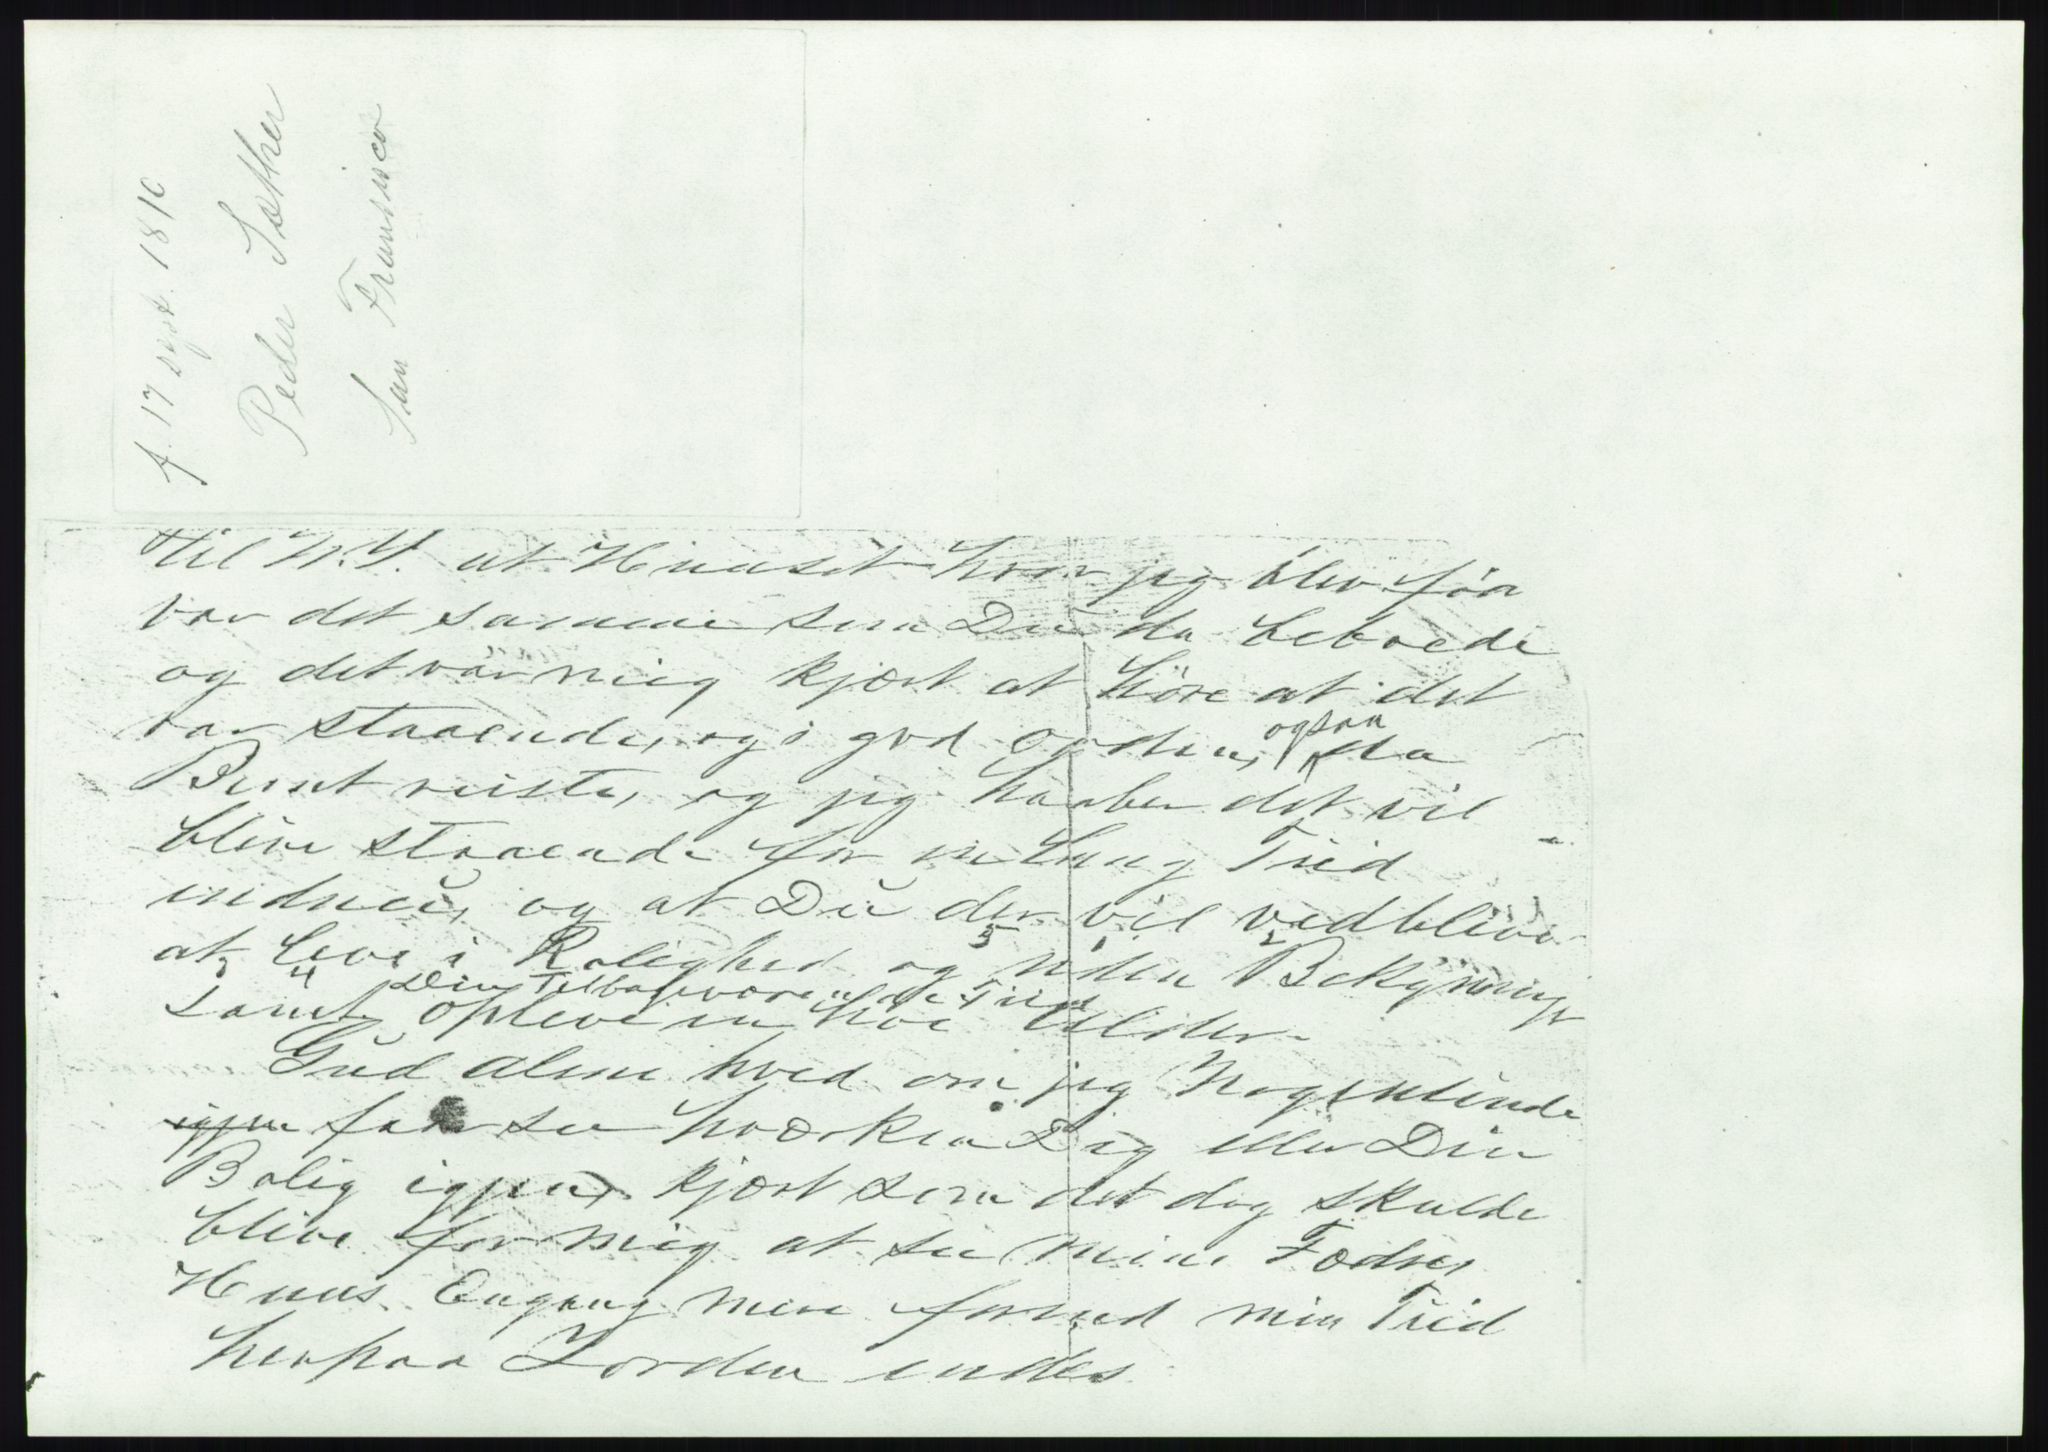 f. 17 sept. 1810
Peder Sæther
San Fransisco
til N.Y. at Huuset hvor jeg blev før
var det samme som Du da beboede
og det var mig kjært at høre at det
var staaende, og i god orden, ogsaa da
Bernt reiste, og jeg haaber det vil
blive staaende for en lang Tiid
endnu, og at Du der vil vedblive
at leve i Rolighed og uden Bekymringer
samt Din Tilbageværende Tiid opleve en høi Alder.
Gud alene hved om jeg Nogenlunde
igjen faar see hværken Dig eller Din
Bolig igjen, kjært som det dog skulde
blive for mig at see mine Fædres
Huus Engang mere forend min Tiid
herpaa Jorden endes